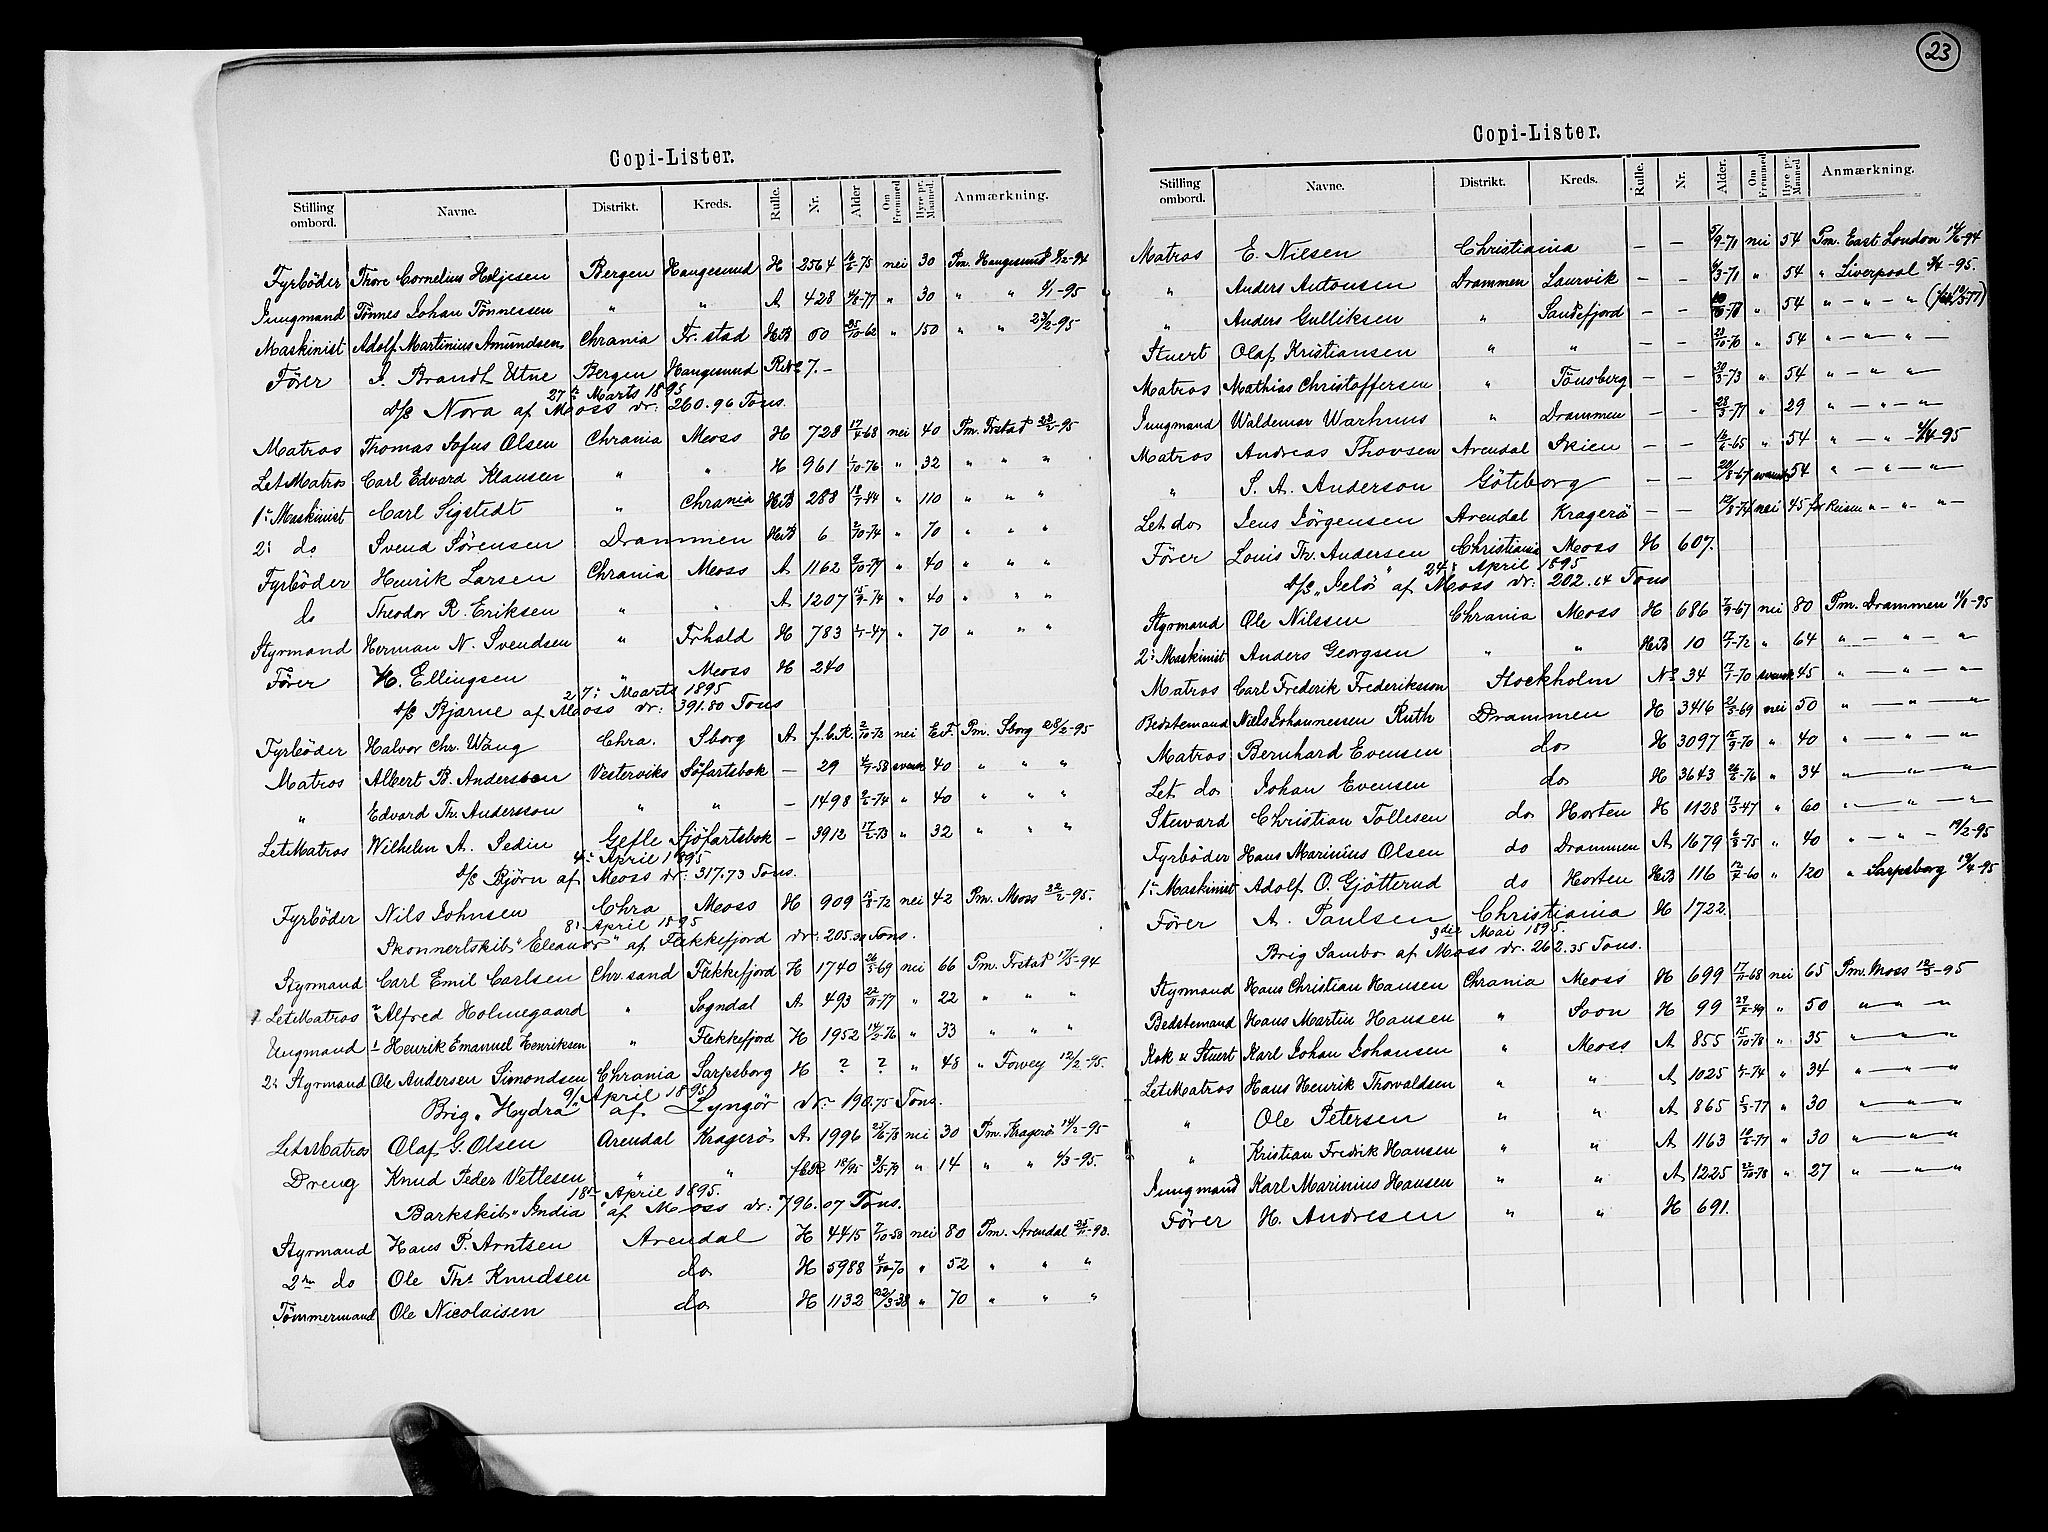 Copi-Lister.
Stilling ombord. Navne. Distrikt. Kreds. Rulle. Nr. Alder Om Fremmed Hyre pr. Maaned. Anmærkning.
Fyrböder Thore Cornelius Heljesen Bergen Haugesund H 2564 nei 30 Pm. Haugesund
Jungmand Tönnes Johan Tönnessen " " A 428 4/8-77 " 30 " " 9/1-95
Maskinist Adolf Martinius Amundsen Chrania Fr.stad H.B 60 25/10-62 " 150 " " 23/2-95
Förer J. Brandt Utne Bergen Haugesund 7.-
27de Marts 1895
d/s Nora af Moss dr: 260.96 Tons.
Matros Thomas Sofus Olsen Chrania Moss H 728 17/4-68 nei 40 Pm. Frstad 23/2-95
LetMatros Carl Edvard Klausen " " H 961 1/10-76 " 32 " " "
1ste Maskinist Carl Sigstedt " Chrania H.B 288 " 110 " " "
2: do Svend Sörensen Drammen H.B 6 2/10-74 " 70 " " "
Fyrböder Henrik Larsen Chrania Moss A 1162 " 40 " " "
do Theodor R. Eriksen " " A 1207 15/9-74 " 40 " " "
Styrmand Herman N. Svendsen " Frhald H 783 1/7-47 " 70 " " "
Förer H. Ellingsen " Moss H 240
27: Marts 1895
d/s Bjarne af Moss dr: 391.80 Tons
Fyrböder Halvor Chr. Wäng Chra. Sborg A f.C.R. 2/10-73 nei E.F. Pm. Sborg 28/2-95
Matros Albert B. Andersson Vesterviks Söfartsbok - 29 4/9-58 svensk 40 " " "
" Edvard Th. Andersson " " - 1498 2/2-74 " 40 " " "
LetMatros Wilhelm A. Sedin Gefle Sjöfartsbok - 3912 17/2-73 " 32 " " "
4: April 1895
d/s Björn af Moss dr: 317.73 Tons.
Fyrböder Nils Johnsen Chra Moss H 909 15/8-72 nei 42 Pm. Moss 22/2-95.
8: April 1895
Skonnertskib "Eleanor" af Flekkefjord dr: 205.30 Tons.
Styrmand Carl Emil Carlsen Chr.sand Flekkefjord H 1740 26/5-69 nei 66 Pm. Frstad 17/5-94
LetMatros 2 Alfred Holmegaard " Sogndal A 493 22/11-77 " 22 " " "
Ungmand 1 Henrik Emanuel Henriksen " Flekkefjord H 1952 14/2-76 " 33 " " "
2: Styrmand Ole Andersen Simondsen Chrania Sarpsborg H ? ? " 48 " Fowey 12/2-95.
9/ April 1895
Brig "Hydra" af Lyngör dr: 190.75 Tons.
LetMatros Olaf G. Olsen Arendal Kragerö A 1996 2/6-78 nei 30 Pm. Kragerö 14/2-95
Dreng Knud Peder Vetlesen " " f.C.R 18/95 3/5-79 " 14 " " 4/3-95.
18de April 1895.
Barkskib "India" af Moss dr: 796.07 Tons.
Styrmand Hans P. Arntsen Arendal H 4415 7/10-58 nei 80 Pm. Arendal
2den do Ole Ths Knudsen do H 5988 4/10-70 " 52 " " "
Tömmermand Ole Nicolaisen do H 1132 22/3-38 " 70 " " "
23
Copi-Lister.
Stilling ombord. Navne. Distrikt. Kreds. Rulle. Nr. Alder. Om Fremmed Hyre pr. Maaned Anmærkning.
Matros E. Nilsen Christiania - - 5/9-71 nei 54 Pm. East London 14/6-94
" Anders Antonsen Drammen Laurvik - - 4/3-71 " 54 " Liverpool 3/4-95.
" Anders Gulliksen " Sandefjord - - " 54 " - " - "
Stuert Olaf Kristiansen " " - - 23/10-70 " 54 " - " - "
Matros Mathias Christoffersen " Tönsberg - - 30/3-73 " 54 " - " - "
Jungmand Waldemar Warhuus " Drammen - - 28/3-77 " 29 " - " - "
Matros Andreas Thovsen Arendal Skien - - 16/6-65 " 54 " - " - 4/4-95
" S. A. Anderson Göteborg - - 29/8-67 svensk 54 " - " - "
Let do Jens Jörgensen Arendal Kragerö - - 12/8-74 nei 45 for Reisen " - " - "
Förer Louis Th. Andersen Christiania Moss H 607.
24: April 1895
d/s "Jelö" af Moss dr: 202.04 Tons
Styrmand Ole Nilssen Chrania Moss H 686 7/9-67 nei 80 Pm. Drammen 11/1-95
2: Maskinist Anders Georgsen " " H.B 10 17/7-72 " 64 " - " - "
Matros Carl Frederik Frederiksson Stockholm No 34 17/7-70 svensk 45 " - " - "
Bedstemand Niels Johannessen Ruth Drammen H 3416 2/3-69 nei 50 " - " - "
Matros Bernhard Evensen do H 3097 15/9-70 " 40 " - " - "
Let do Johan Evensen do H 3643 26/2-76 " 34 " - " - "
Steward Christian Tollesen do Horten H 1128 17/3-47 " 60 " - " - "
Fyrböder Hans Marinius Olsen do Drammen A 1679 6/8-75 " 40 " - " - 19/2-95
1ste Maskinist Adolf O. Gjötterud do Horten H.B 116 12/7-60 " 120 " Sarpsborg 19/4-95
Förer A. Paulsen Christiania H 1722.
3die Mai 1895.
Brig Sambo af Moss dr. 262.35 Tons.
Styrmand Hans Christian Hansen Chrania Moss H 699 17/11-68 nei 65 Pm. Moss 12/3-95
Bedstemand Hans Martin Hansen " Soon H 99 29/8-49 " 50 " - " - "
Kok u Stuert Karl Johan Johansen " Moss A 855 15/10-78 " 35 " - " - "
LetMatros Hans Henrik Thorvaldsen " " A 1025 5/7-74 " 34 " - " - "
" Ole Petersen " " A 865 5/3-77 " 30 " - " - "
" Kristian Fredrik Hansen " " A 1163 19/6-77 " 30 " - " - "
Jungmand Karl Marinius Hansen " " A 1225 22/10-78 " 27 " - " - "
Förer H. Andresen " " H 691.